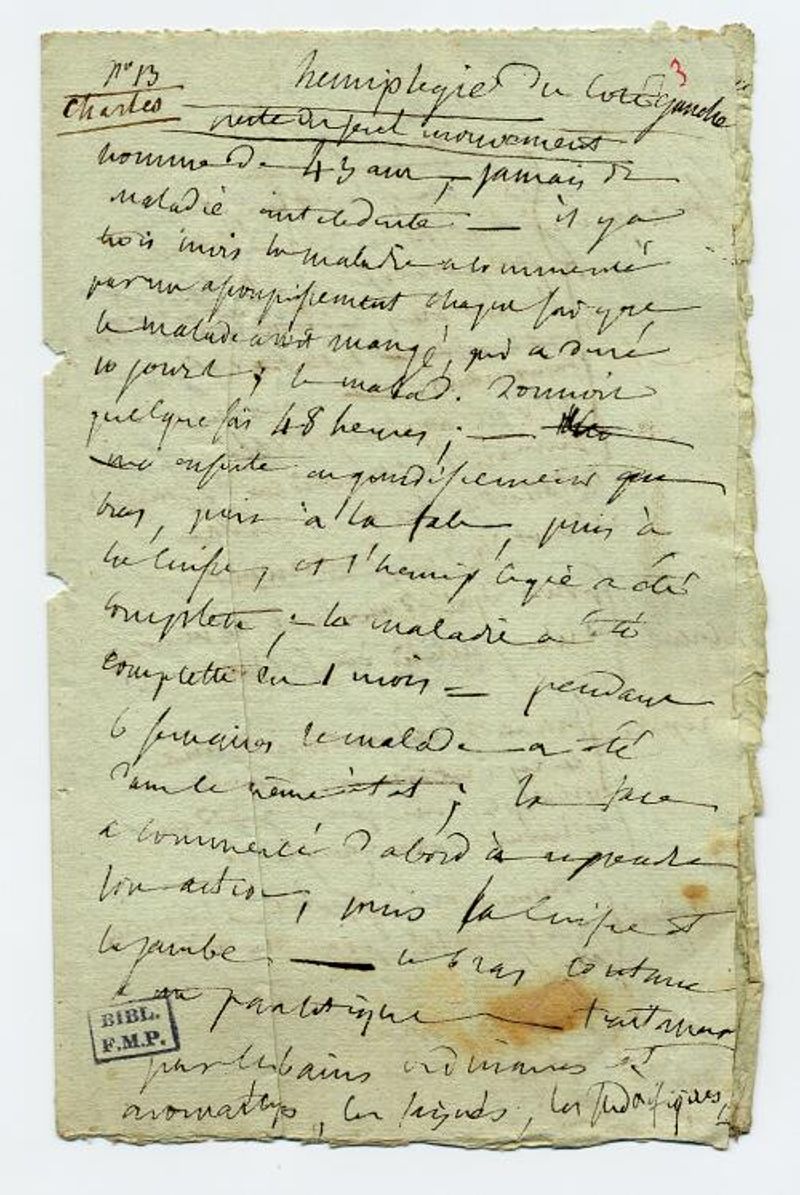 nº 13
Charles
3
hemiplegie du coté gauche
perte du seul mouvement
homme de 43 ans, jamais de
maladie antecedente — il y a
trois mois la maladie a commencé
par un assoupissement chaque fois que
le malade avoit mangé, qui a duré
10 jours; le malad. dormoit
quelque fois 48 heures; —
ensuite engourdissement
bras, puis à la face, puis à
la cuisse, et l'hemiplegie a été
complette; — la maladie a été
complette en 1 mois — pendant
6 semaines le malade a été
dans le même état; la face
a commencé d'abord à reprendre
son action, puis la cuisse et
la jambe — le bras continue
paralitique — traitment
par les bains ordinaires et
aromatiqs, les
BIBL.
F.M.P.